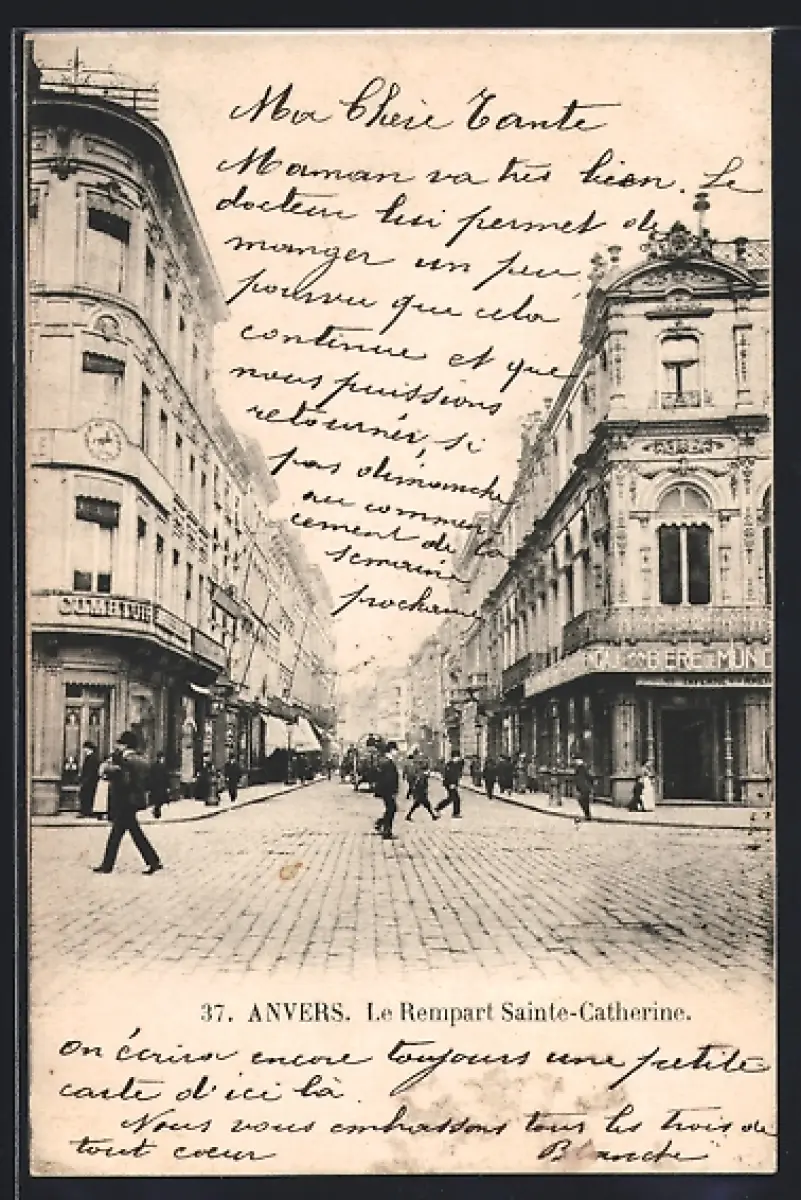 Ma Chère Tante
Maman va très bien. Le
docteur lui permet de
manger un peu
pourvu que cela
continue et que
nous puissions
retourner, si
pas dimanche
au commen
cement de la
semaine
prochaine
COMPTOIR
BIERE DE MUNIC
TAVERNE
37. ANVERS. Le Rempart Sainte-Catherine.
On écrira encore toujours une petite
carte d'ici là.
Nous vous embrassons tous les trois de
tout coeur Blanche